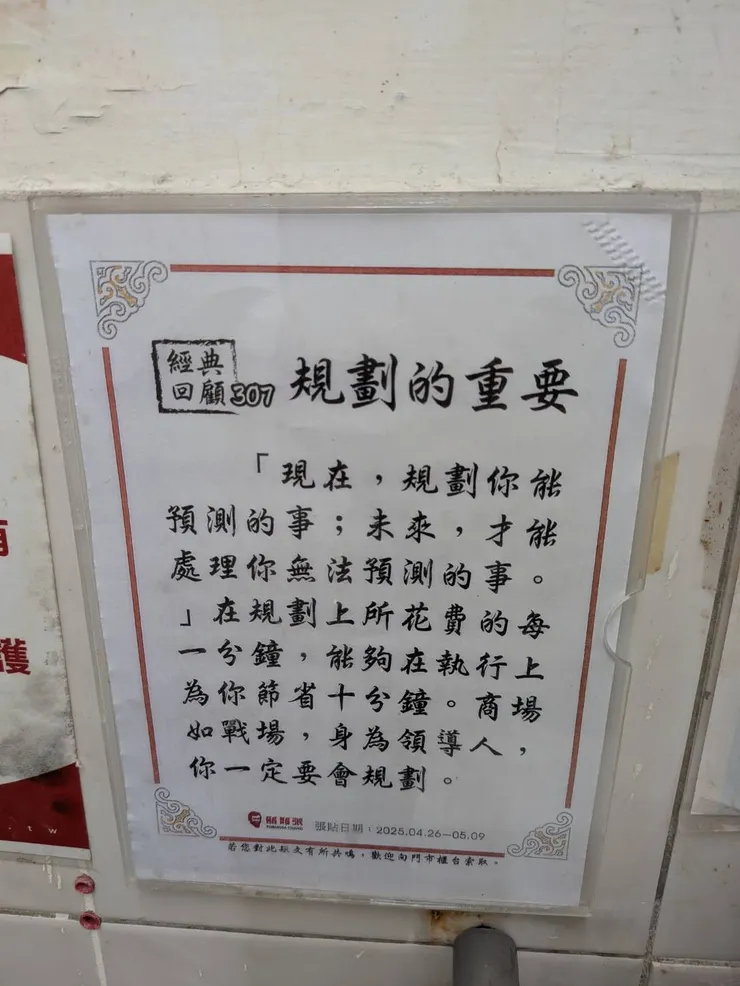 經典
回顧307 規劃的重要
「現在，規劃你能
預測的事；未來，才能
處理你無法預測的事。
」在規劃上所花費的每
一分鐘，能夠在執行上
為你節省十分鐘。商場
如戰場，身為領導人，
你一定要會規劃。
鬍鬚張
張貼日期：2025.04.26-05.09
若您對此短文有所共鳴，歡迎向門市櫃台索取。
獲
.tw